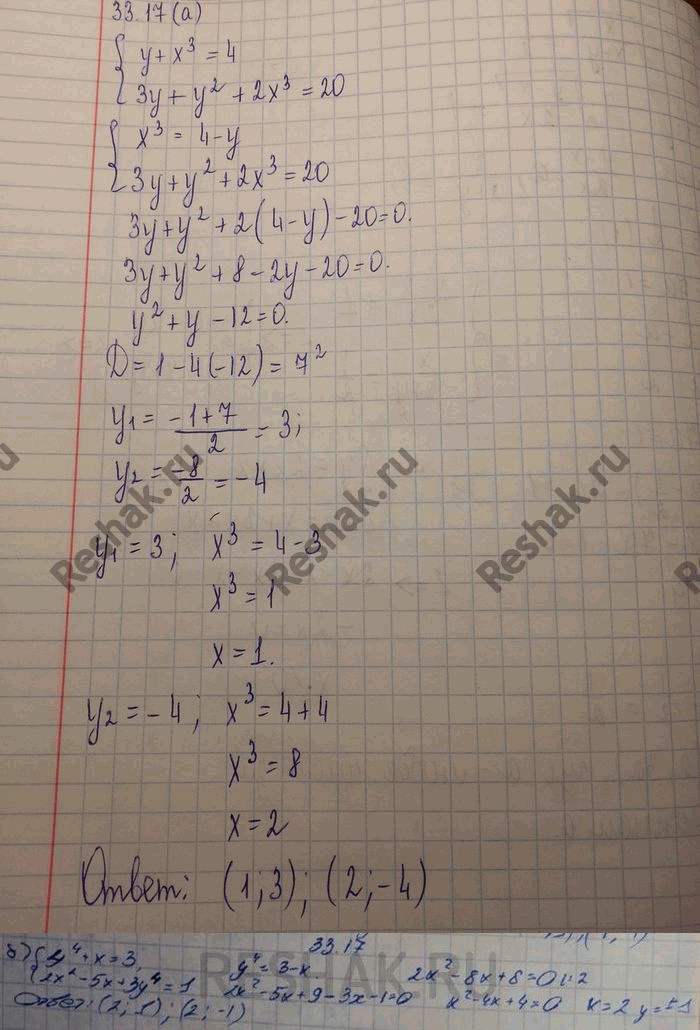 33.17 (а)
{ y + x³ = 4
3y + y² + 2x³ = 20
{ x³ = 4 - y
3y + y² + 2x³ = 20
3y + y² + 2(4 - y) - 20 = 0.
3y + y² + 8 - 2y - 20 = 0.
y² + y - 12 = 0.
D = 1 - 4(-12) = 7²
y₁ = (-1 + 7)/2 = 3;
y₂ = -8/2 = -4
y₁ = 3; x³ = 4 - 3
x³ = 1
x = 1.
y₂ = -4; x³ = 4 + 4
x³ = 8
x = 2
Ответ: (1; 3); (2; -4)
Reshak.ru Reshak.ru Reshak.ru
33.17
б) { y⁴ + x = 3, y⁴ = 3 - x. 2x² - 8x + 8 = 0 |:2
2x² - 5x + 3y⁴ = 1 2x² - 5x + 9 - 3x - 1 = 0 x² - 4x + 4 = 0 x = 2 y = ±1
Ответ: (2; 1); (2; -1)
RESHAK.RU